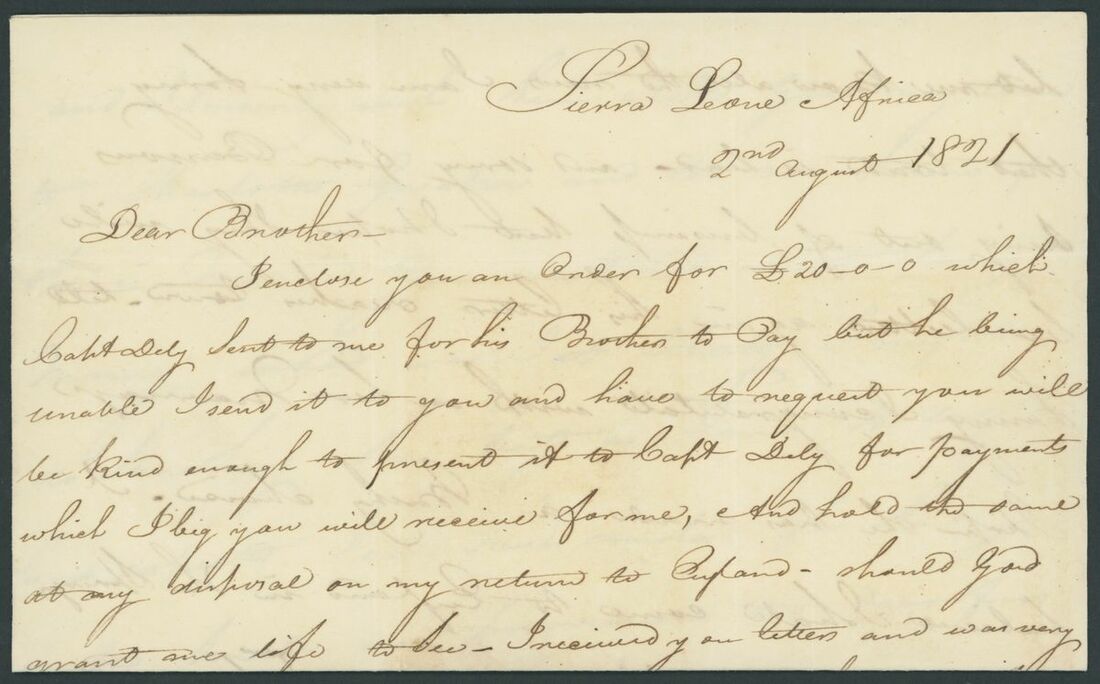 Sierra Leone Africa
2nd August 1821
Dear Brother-
I enclose you an Order for £20-0-0 which
Capt Dely Sent to me for his Brother to Pay but he being
unable I send it to you and have to request you will
be kind enough to present it to Capt Dely for payments
which I big you will receive for me, And hold the same
at my disposal on my return to England - should God
grant me life to See - I received you letters and was very